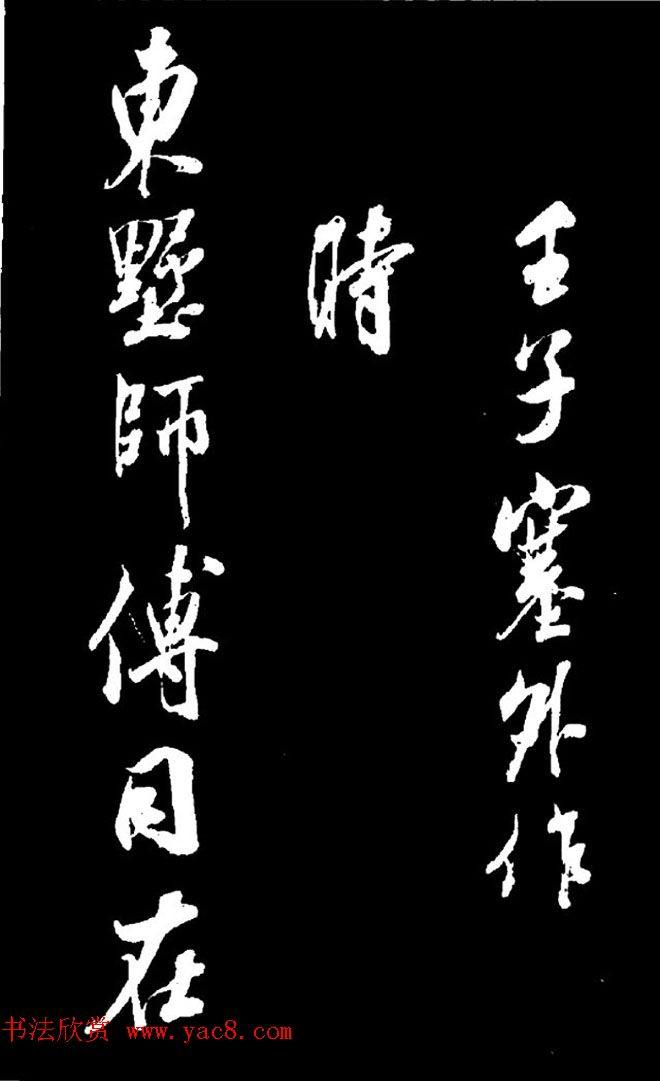 壬子塞外作
時
東墅師傅同在
书法欣赏 www.yac8.com